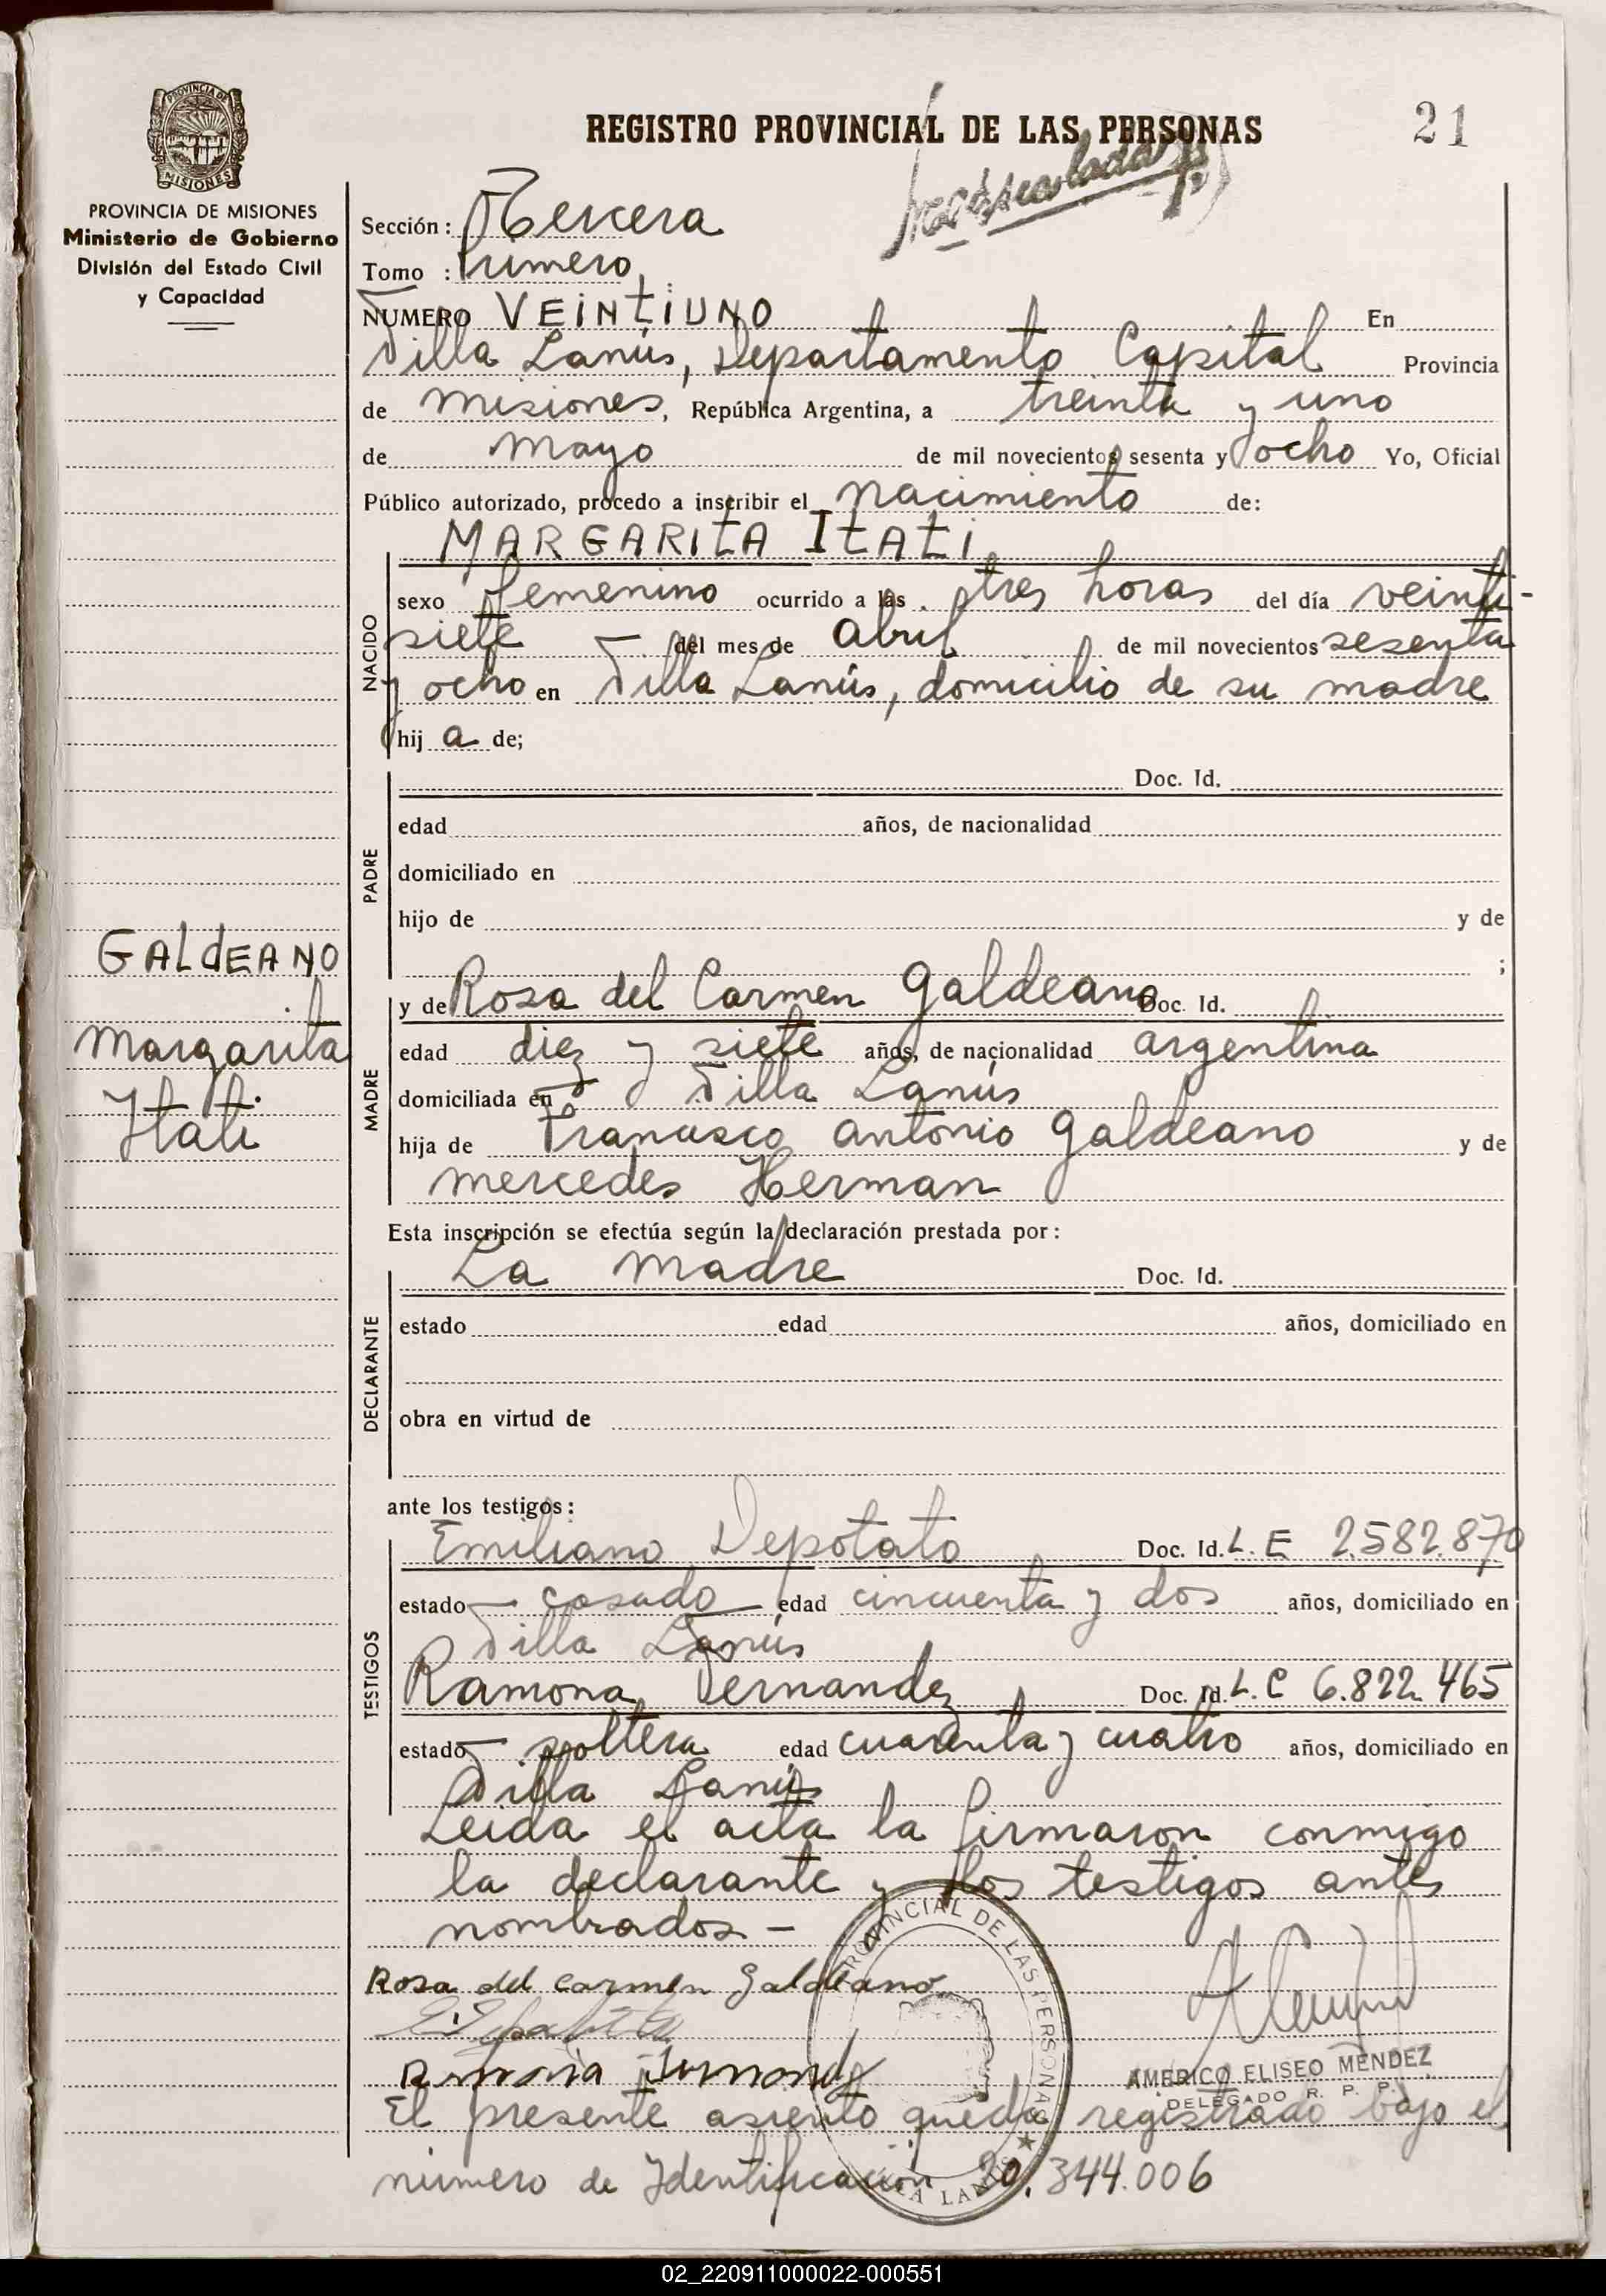 REGISTRO PROVINCIAL DE LAS PERSONAS
21
PROVINCIA DE MISIONES
PROVINCIA DE MISIONES
Ministerio de Gobierno
División del Estado Civil
y Capacidad
Sección: Tercera
Tomo : Primero
NUMERO VEINTIUNO En
Villa Lanús, Departamento Capital Provincia
de Misiones, República Argentina, a treinta y uno
de Mayo de mil novecientos sesenta y ocho Yo, Oficial
Público autorizado, procedo a inscribir el nacimiento de:
MARGARITA ITATI
NACIDO
sexo femenino ocurrido a las tres horas del día veinti-
siete del mes de abril de mil novecientos sesenta
y ocho en Villa Lanús, domicilio de su madre
hij a de;
PADRE
Doc. Id.
edad años, de nacionalidad
domiciliado en
hijo de y de
;
GALDEANO
Margarita
Itati
MADRE
y de Rosa del Carmen Galdeano Doc. Id.
edad diez y siete años, de nacionalidad argentina
domiciliada en Villa Lanús
hija de Francisco Antonio Galdeano y de
Mercedes Herman
Esta inscripción se efectúa según la declaración prestada por:
DECLARANTE
La madre Doc. Id.
estado edad años, domiciliado en
obra en virtud de
ante los testigos:
TESTIGOS
Emiliano Depotato Doc. Id. L. E 2.582.870
estado casado edad cincuenta y dos años, domiciliado en
Villa Lanús
Ramona Fernandez Doc. Id. L. C 6.822.465
estado soltera edad cuarenta y cuatro años, domiciliado en
Villa Lanús
Leida el acta la firmaron conmigo
la declarante y los testigos antes
nombrados -
Rosa del Carmen Galdeano
PROVINCIAL DE LAS PERSONAS
AMERICO ELISEO MENDEZ
DELEGADO R. P. P.
El presente asiento queda registrado bajo el
número de Identificación 20.344.006
02_220911000022-000551